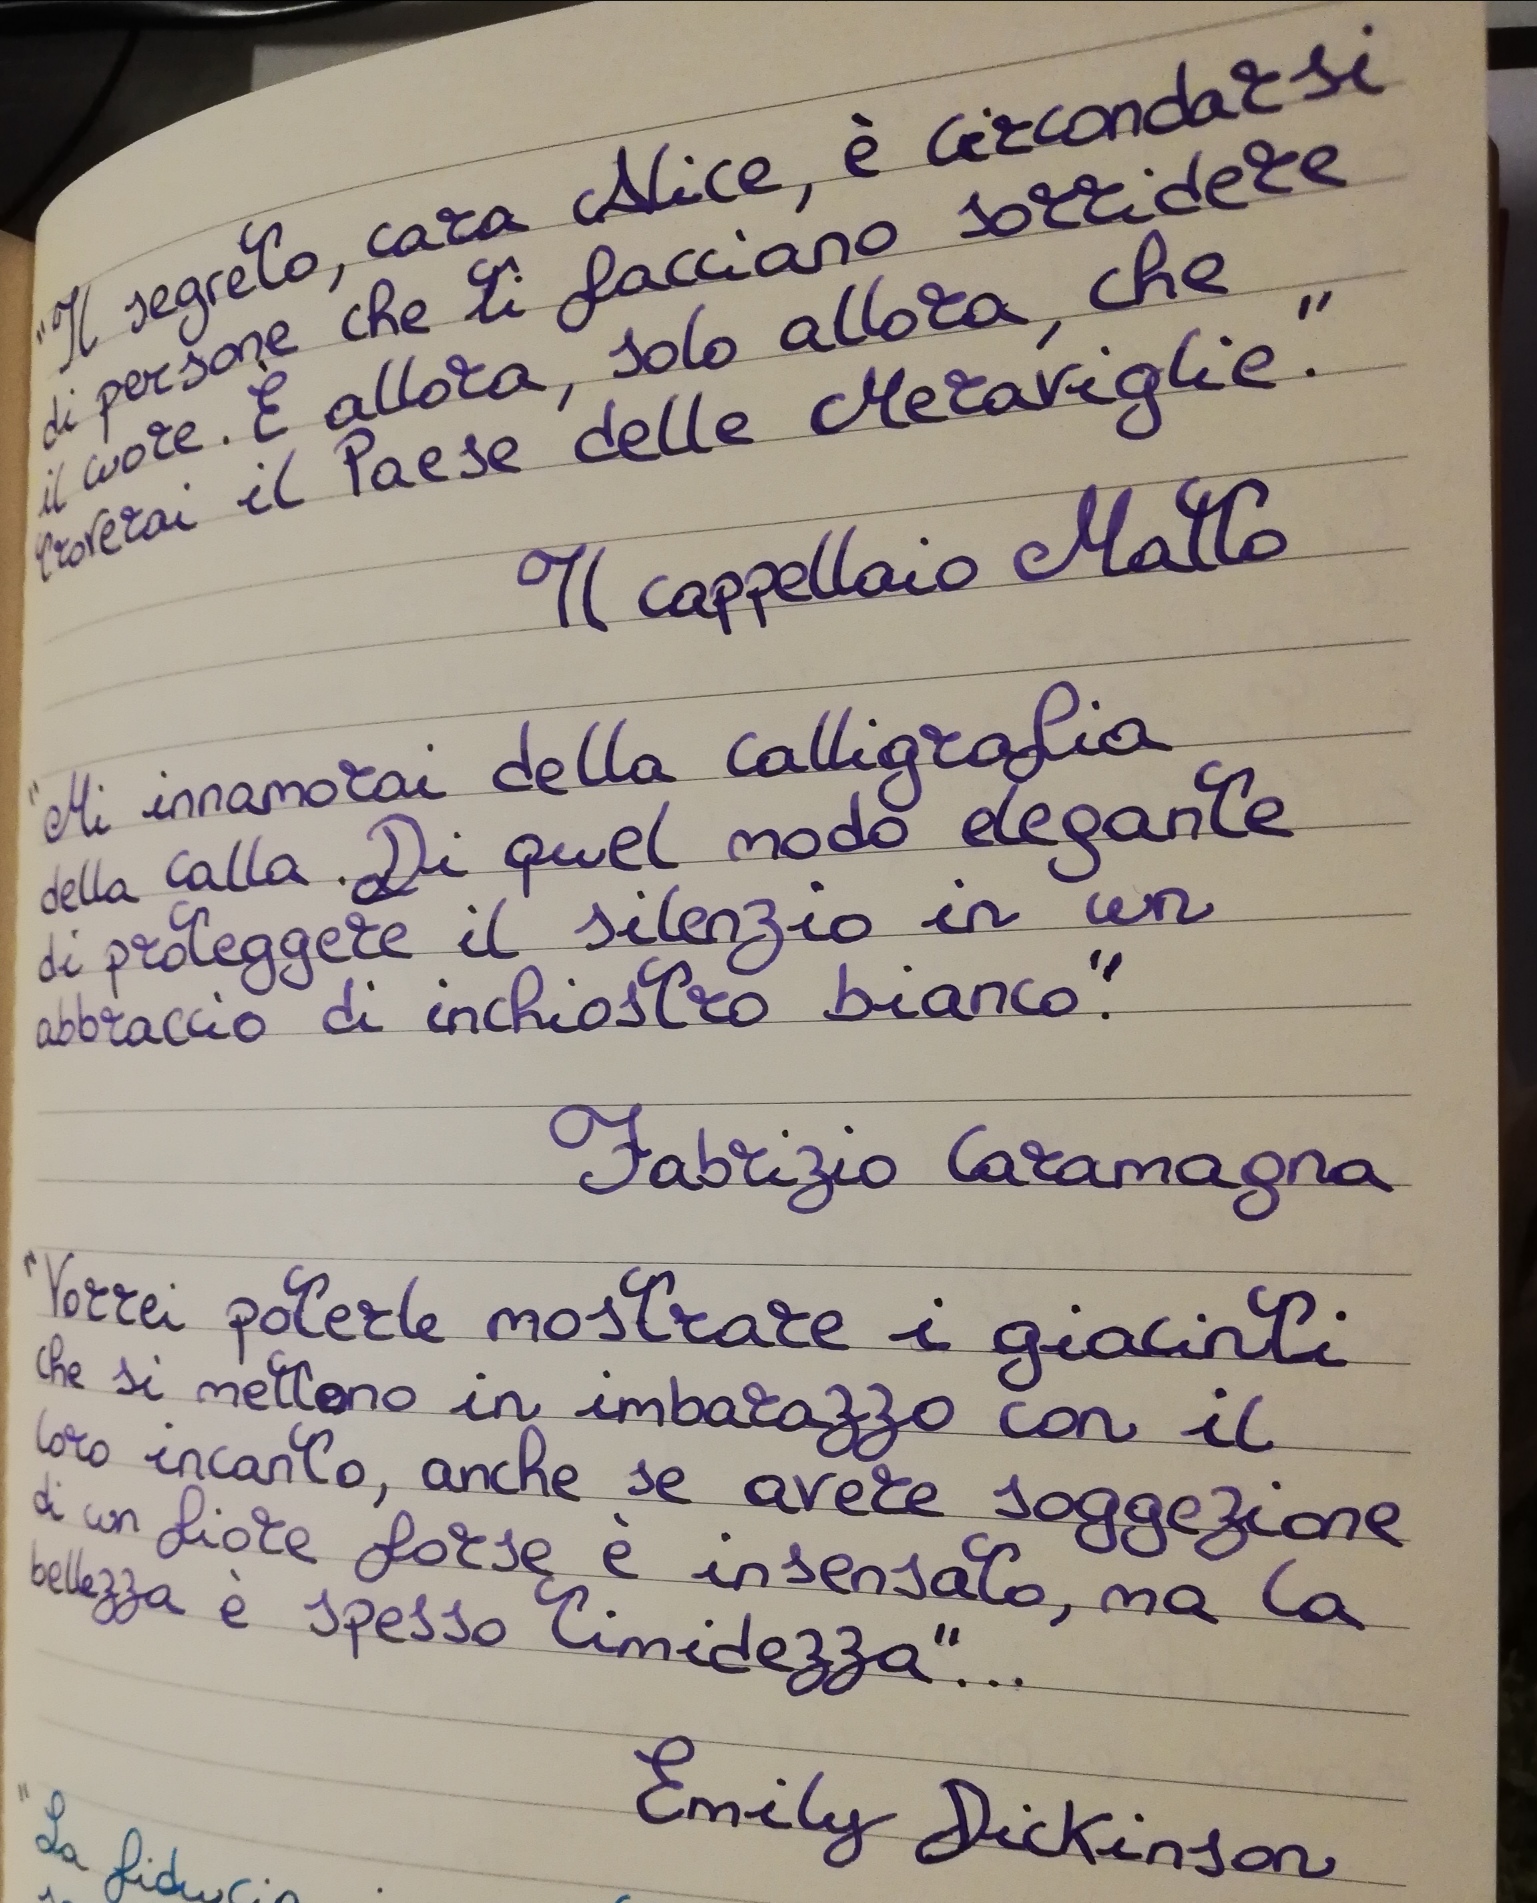 "Il segreto, cara Alice, è circondarsi
di persone che ti facciano sorridere
il cuore. È allora, solo allora, che
troverai il Paese delle Meraviglie."
Il cappellaio Matto
"Mi innamorai della calligrafia
della calla. Di quel modo elegante
di proteggere il silenzio in un
abbraccio di inchiostro bianco".
Fabrizio Caramagna
"Vorrei poterle mostrare i giacinti
che si mettono in imbarazzo con il
loro incanto, anche se avere soggezione
di un fiore forse è insensato, ma la
bellezza è spesso timidezza"...
Emily Dickinson
"La fiducia